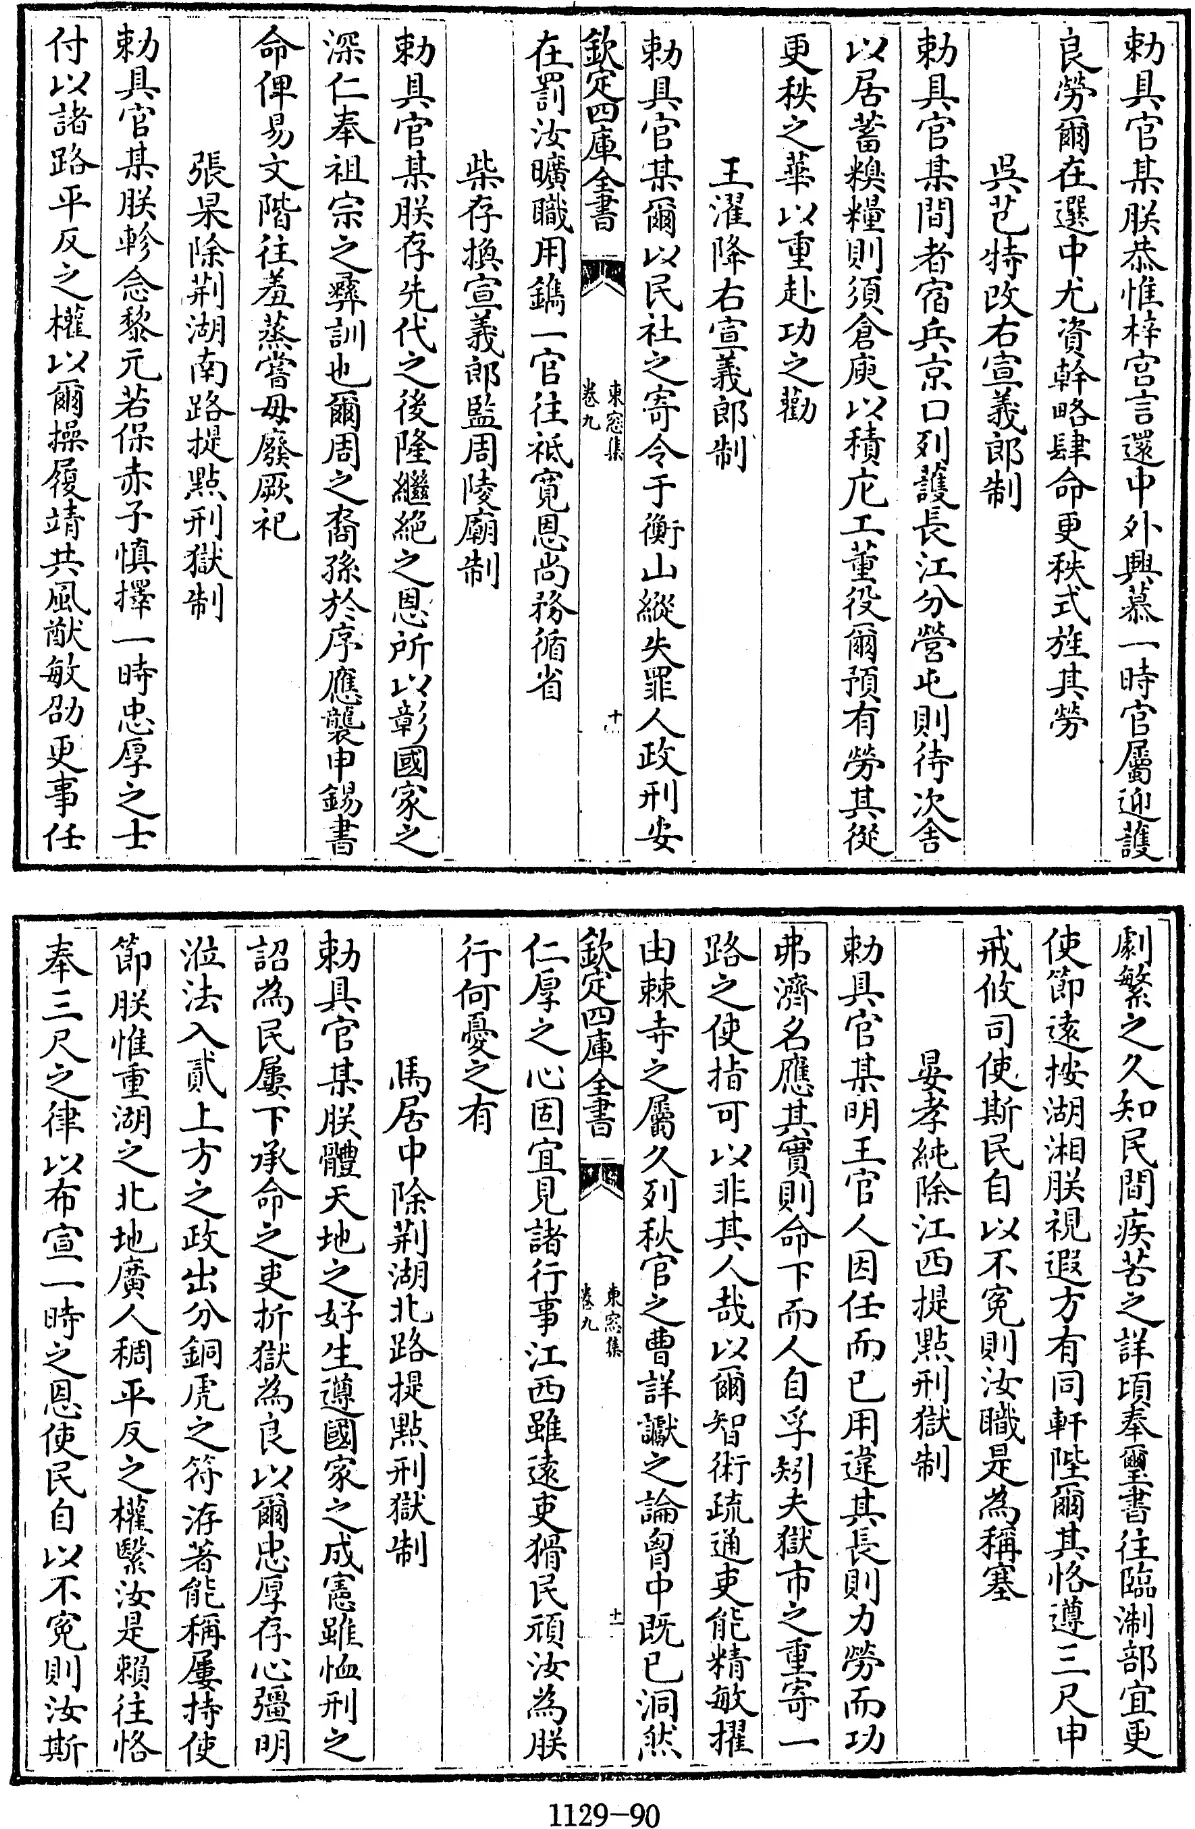 勅具官某朕恭惟梓宮言還中外興慕一時官屬迎護
良勞爾在選中尤資幹略肆命更秩式旌其勞
吳芑特改右宣義郎制
勅具官某間者宿兵京口列護長江分營屯則待次舍
以居蓄糗糧則須倉庾以積庀工董役爾預有勞其從
更秩之華以重赴功之勸
王濯降右宣義郎制
勅具官某爾以民社之寄令于衡山縱失罪人政刑安
欽定四庫全書
東窓集
卷九
十
在罰汝曠職用鐫一官往祗寛恩尚務循省
柴存換宣義郎監周陵廟制
勅具官某朕存先代之後隆繼絶之恩所以彰國家之
深仁奉祖宗之彛訓也爾周之裔孫於序應襲申錫書
命俾易文階往羞蒸嘗毋廢厥祀
張杲除荆湖南路提點刑獄制
勅具官某朕軫念黎元若保赤子慎擇一時忠厚之士
付以諸路平反之權以爾操履靖共風猷敏劭更事任
劇繁之久知民間疾苦之詳頃奉璽書往臨淛部宜更
使節逺按湖湘朕視遐方有同軒陛爾其恪遵三尺申
戒攸司使斯民自以不寃則汝職是為稱塞
晏孝純除江西提點刑獄制
勅具官某明王官人因任而已用違其長則力勞而功
弗濟名應其實則命下而人自孚矧夫獄市之重寄一
路之使指可以非其人哉以爾智術疏通吏能精敏擢
由棘寺之屬久列秋官之曹詳讞之論胷中既已洞然
欽定四庫全書
東窓集
卷九
十一
仁厚之心固宜見諸行事江西雖逺吏猾民頑汝為朕
行何憂之有
馮居中除荆湖北路提點刑獄制
勅具官某朕體天地之好生遵國家之成憲雖恤刑之
詔為民屢下承命之吏折獄為良以爾忠厚存心彊明
涖法入貳上方之政出分銅虎之符洊著能稱屢持使
節朕惟重湖之北地廣人稠平反之權繄汝是賴往恪
奉三尺之律以布宣一時之恩使民自以不寃則汝斯
1129-90